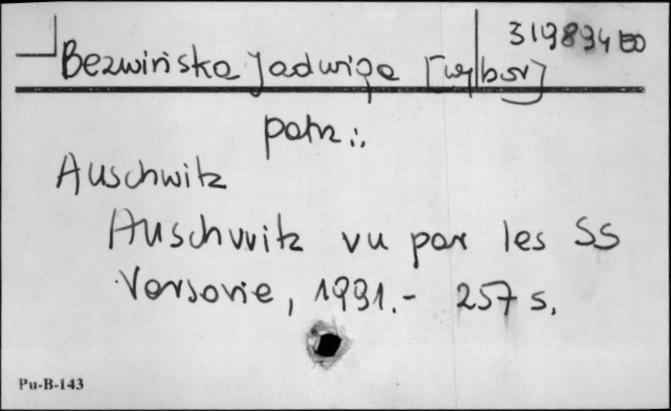 319894 BO
Bezwińska Jadwiga [wybór]
patrz:
Auschwitz
Auschwitz vu par les SS
Varsovie, 1991.- 257 s.
Pu-B-143